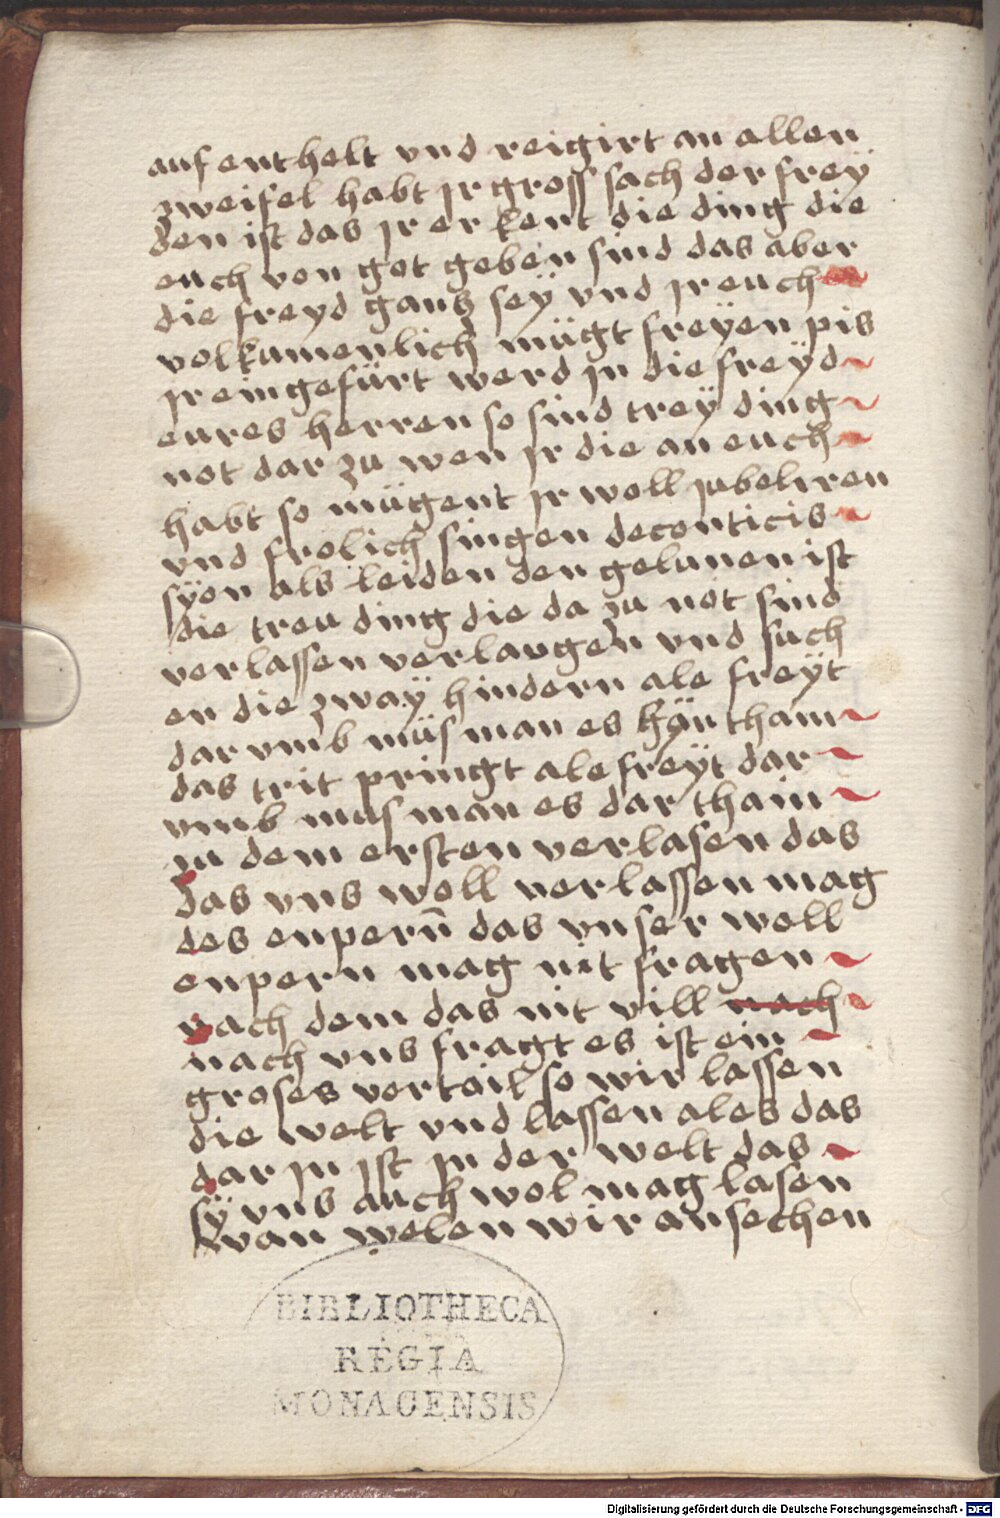 auf enthelt vnd reigirt an allen
zweifel habt jr gross sach der frey
den ist das jr er kent die ding die
euch von got geben sind das aber
die freyd gantz seÿ vnd jr euch
volkumenlich mügt freÿen pis
jr eingefürt werd jn die freÿd
eures herren so sind treÿ ding
not dar zu wen jr die an euch
habt so mügent jr woll jubeliren
vnd frolich singen deconticis
sÿon als leiden den gelunen ist
die treu ding die da zu not sind
verlassen verlangen vnd such
en die zwaÿ hindern ale freÿt
dar vmb müs man es hÿn tham
das trit pringt ale freÿt dar
vmb mus man es dar thain
zu dem ersten verlasen das
das vns woll verlassen mag
des enpern̄ das vnser woll
enpern mag nit fragen
nach dem das nit vill nach
nach vns fragt es ist ein
groses vortail so wir lassen
die welt vnd lassen ales das
dar jn ist jn der welt das
sÿ vns auch wol mag lasen
wan welen wir ansechen
BIBLIOTHECA
REGIA
MONACENSIS
Digitalisierung gefördert durch die Deutsche Forschungsgemeinschaft - DFG